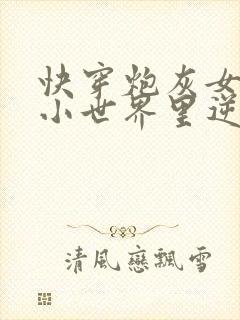 快穿炮灰女
小世界里逆
清風戀飄雪